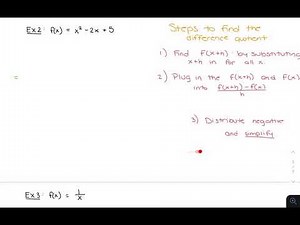 Ex2: f(x) = x² - 2x + 5
Steps to find the
difference quotient
1) Find f(x+h) by substituting
x+h in for all x.
2) Plug in the f(x+h) and f(x)
into \frac{f(x+h) - f(x)}{h}
3) Distribute negative
and simplify
=
Ex3: f(x) = \frac{1}{x}